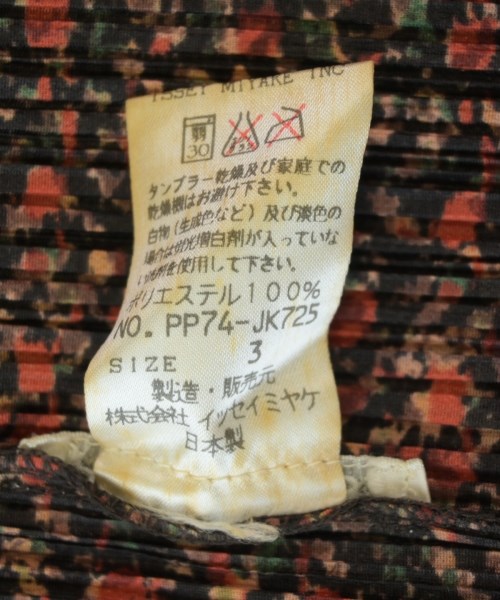 ISSEY MIYAKE INC
弱
30
エンソサラシ
タンブラー乾燥及び家庭での
乾燥機はお避け下さい。
白物（生成色など）及び淡色の
場合は蛍光増白剤が入っていな
い洗剤を使用して下さい。
ポリエステル100%
NO. PP74-JK725
SIZE 3
製造・販売元
株式会社 イッセイミヤケ
日本製